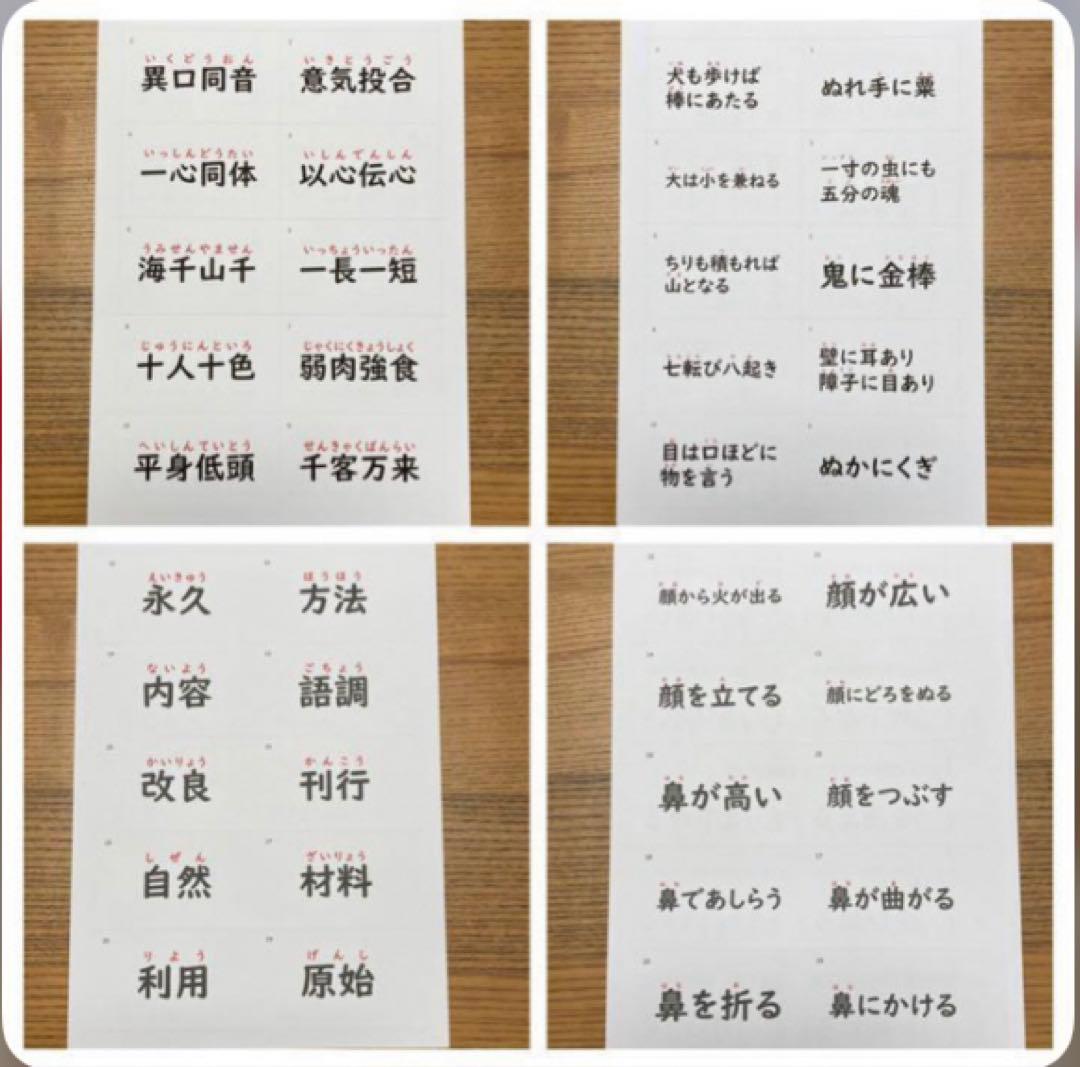 いくどうおん
異口同音
いきとうごう
意気投合
いっしんどうたい
一心同体
いしんでんしん
以心伝心
うみせんやません
海千山千
いっちょういったん
一長一短
じゅうにんといろ
十人十色
じゃくにくきょうしょく
弱肉強食
へいしんていとう
平身低頭
せんきゃくばんらい
千客万来
犬も歩けば
棒にあたる
ぬれ手に粟
大は小を兼ねる
一寸の虫にも
五分の魂
ちりも積もれば
山となる
鬼に金棒
七転び八起き
壁に耳あり
障子に目あり
目は口ほどに
物を言う
ぬかにくぎ
えいきゅう
永久
ほうほう
方法
ないよう
内容
ごちょう
語調
かいりょう
改良
かんこう
刊行
しぜん
自然
ざいりょう
材料
りよう
利用
げんし
原始
顔から火が出る
顔が広い
顔を立てる
顔にどろをぬる
鼻が高い
顔をつぶす
鼻であしらう
鼻が曲がる
鼻を折る
鼻にかける